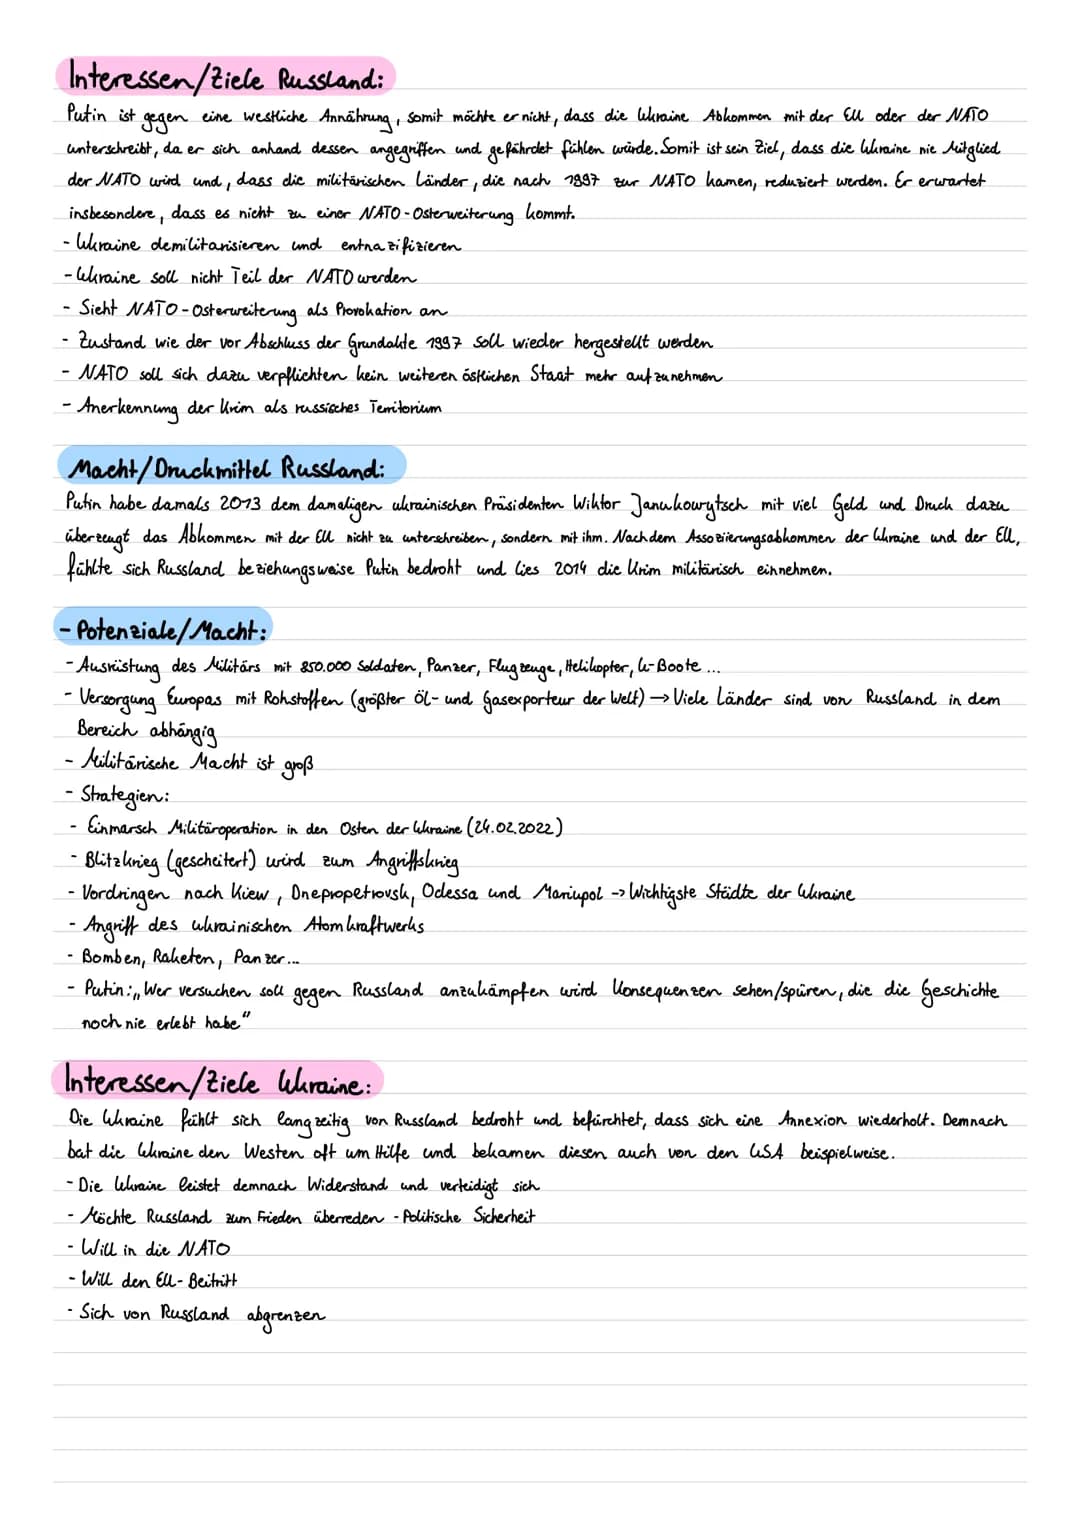 Interessen/Ziele Russland:
Putin ist gegen eine westliche Annährung, somit möchte er nicht, dass die Ukraine Abkommen mit der EU oder der NATO
unterschreibt, da er sich anhand dessen angegriffen und gefährdet fühlen würde. Somit ist sein Ziel, dass die Ukraine nie Mitglied
der NATO wird und, dass die militärischen Länder, die nach 1997 zur NATO kamen, reduziert werden. Er erwartet
insbesondere, dass es nicht zu einer NATO-Osterweiterung kommt.
- Ukraine demilitarisieren und entnazifizieren
- Ukraine soll nicht Teil der NATO werden
- Sieht NATO-Osterweiterung als Provokation an
- Zustand wie der vor Abschluss der Grundakte 1997 soll wieder hergestellt werden
- NATO soll sich dazu verpflichten kein weiteren östlichen Staat mehr aufzunehmen
- Anerkennung der Krim als russisches Territorium
Macht/Druckmittel Russland:
Putin habe damals 2013 dem damaligen ukrainischen Präsidenten Wiktor Janukowytsch mit viel Geld und Druck dazu
überzeugt das Abkommen mit der EU nicht zu unterschreiben, sondern mit ihm. Nach dem Assoziierungsabkommen der Ukraine und der EU,
fühlte sich Russland beziehungsweise Putin bedroht und lies 2014 die Krim militärisch einnehmen.
- Potenziale/Macht:
- Ausrüstung des Militärs mit 850.000 Soldaten, Panzer, Flugzeuge, Helikopter, U-Boote ...
- Versorgung Europas mit Rohstoffen (größter Öl- und Gasexporteur der Welt) → Viele Länder sind von Russland in dem
Bereich abhängig
- Militärische Macht ist groß
- Strategien:
- Einmarsch Militäroperation in den Osten der Ukraine (24.02.2022)
- Blitzkrieg (gescheitert) wird zum Angriffskrieg
- Vordringen nach Kiew, Dnepropetrovsk, Odessa und Mariupol -> Wichtigste Städte der Ukraine
- Angriff des ukrainischen Atomkraftwerks
- Bomben, Raketen, Panzer...
- Putin: „Wer versuchen soll gegen Russland anzukämpfen wird Konsequenzen sehen/spüren, die die Geschichte
noch nie erlebt habe"
Interessen/Ziele Ukraine:
Die Ukraine fühlt sich langzeitig von Russland bedroht und befürchtet, dass sich eine Annexion wiederholt. Demnach
bat die Ukraine den Westen oft um Hilfe und bekamen diesen auch von den USA beispielweise.
- Die Ukraine leistet demnach Widerstand und verteidigt sich
- Möchte Russland zum Frieden überreden - Politische Sicherheit
- Will in die NATO
- Will den EU-Beitritt
- Sich von Russland abgrenzen